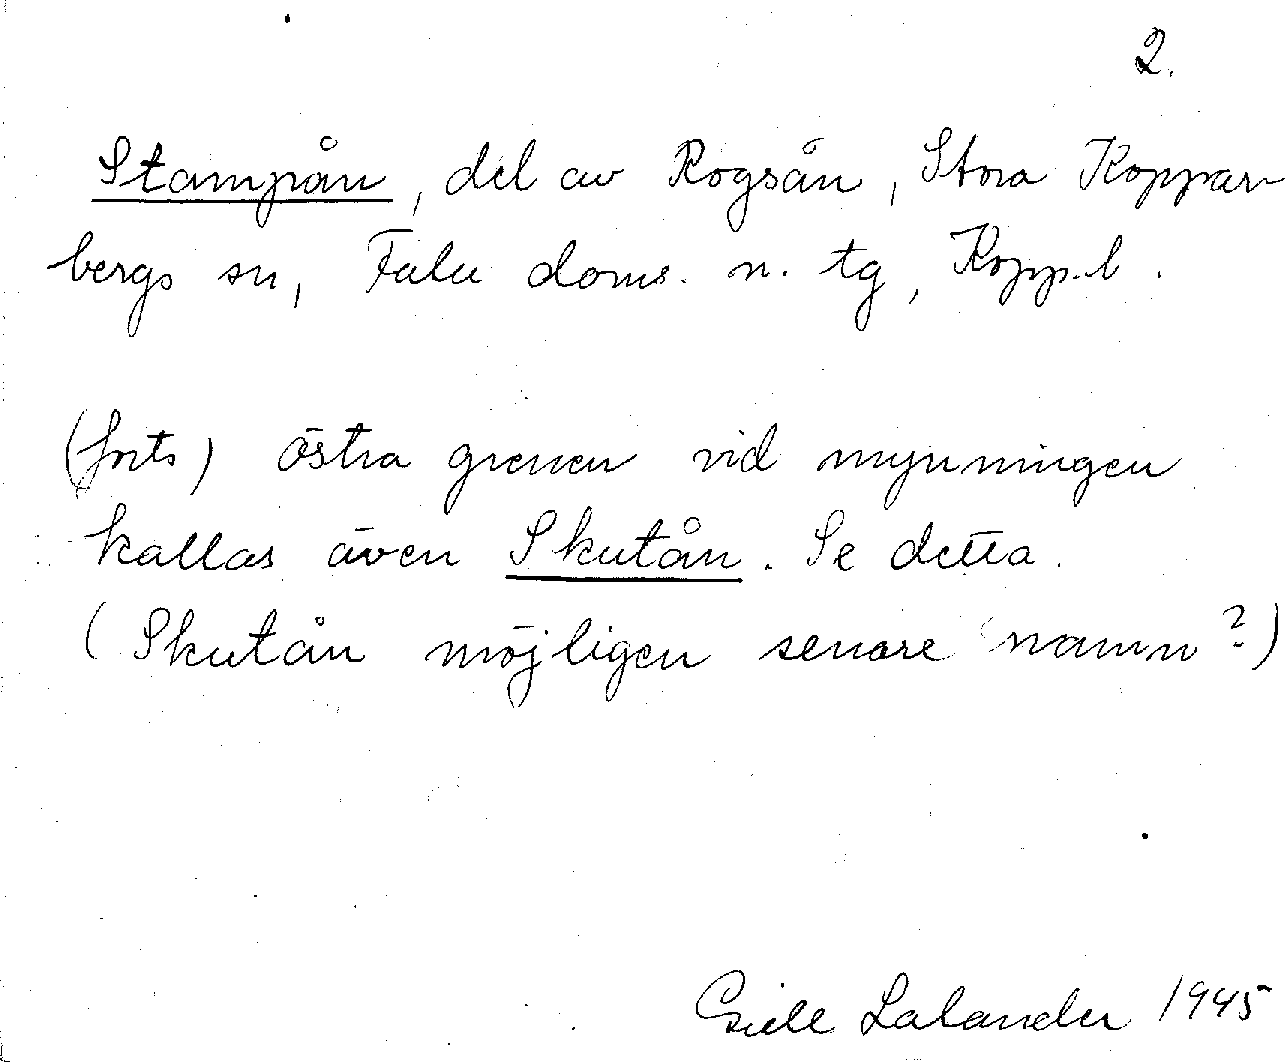 2.
Stampån, del av Rogsån, Stora Koppar
bergs sn, Falu doms. n. tg, Kopp.l.
(forts) östra grenen vid mynningen
kallas även Skutån. Se detta.
(Skutån möjligen senare namn?)
Lalander 1945